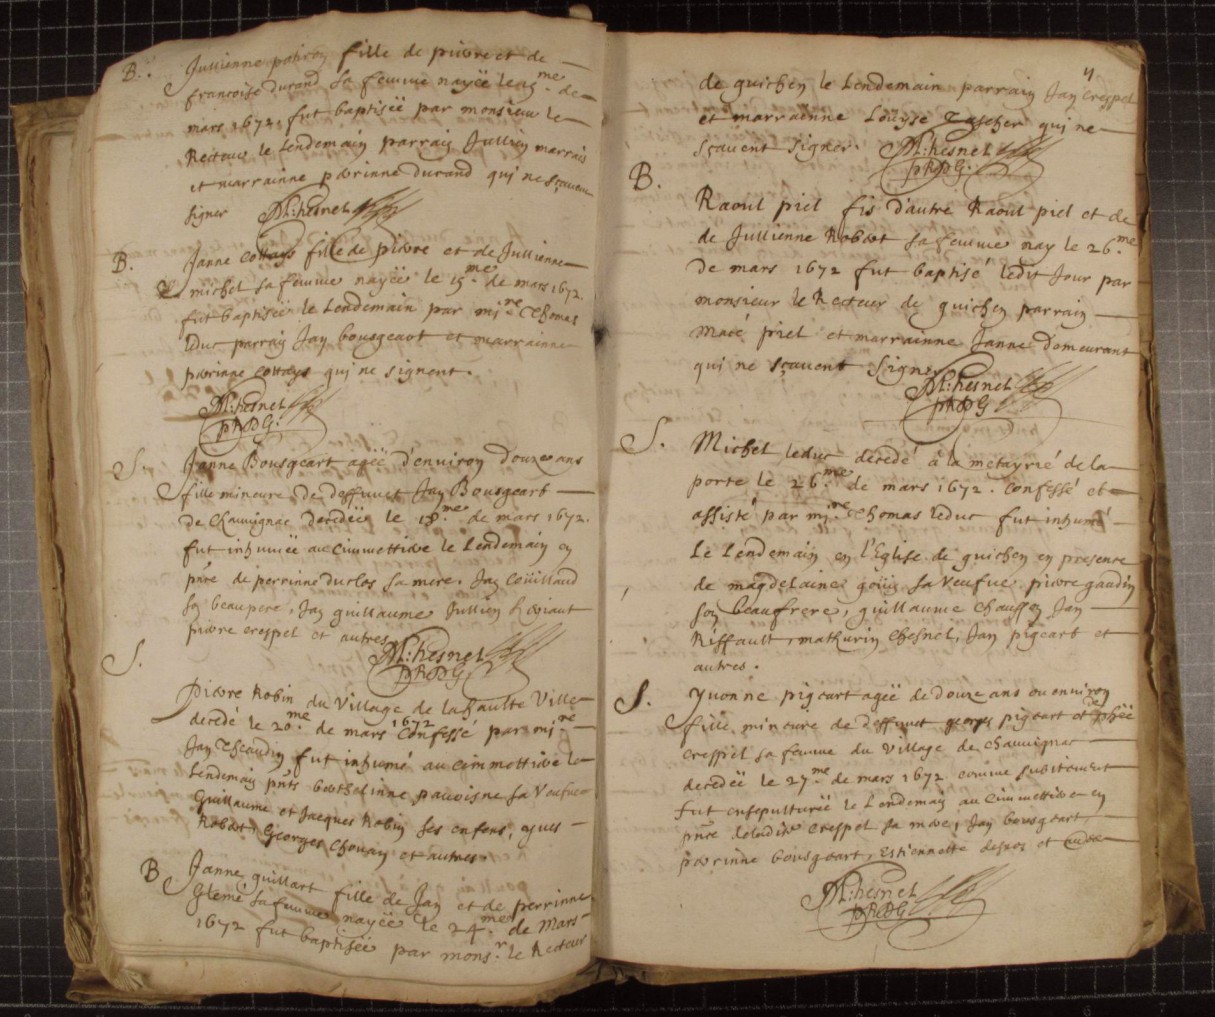 B. Jullienne patiron fille de pierre et de
francoise durand sa femme nayëe le 25.me de
mars 1672, fut baptisëe par monsieur le
Recteur le Lendemain parrain Jullien marrais
et marrainne perrinne durand qui ne sçavent
signer M:hesnel
B. Janne cottays fille de pierre et de Jullienne
michel sa femme nayëe le 15.me de mars 1672.
fut baptisëe le Lendemain par mi:re Thomas
leduc parrain Jan bousgeart et marrainne
perinne cottays qui ne signent.
M:hesnel
pRDG.
S. Janne Bousgeart agëe d'environ douze ans
fille mineure de deffunct Jan Bousgeart
de Chauvignac decedëe le 18.me de mars 1672.
fut inhumëe au Cimmettiere le Lendemain en
pnce de perrinne durlos sa mere. Jan Coüilland
son beaupere, Jan guillaume Jullien
pierre crespel et autres
M:hesnel
pRDG
S. Pierre Robin du Village de la haulte Ville
decedé le 20.me de mars 1672 Confessé par mi:re
Jan fut inhumé au Cimmettiere le
Lendemain pnts berthelinne sa Veufue
Guillaume et Jacques Robin ses enfens, yues
Robert, Georges Chouan et autres.
B. Janne guillart fille de Jan et de perrinne
Gleme sa femme nayëe le 24.me de Mars
1672 fut baptisëe par mons.r le Recteur
de guichen le Lendemain parrain Jan Crespel
et marrainne Louyse Tascher qui ne
sçavent signer. M:hesnel
pRDG.
B.
Raoul piel fis d'autre Raoul piel et de
de Jullienne Robert sa femme nay le 26.me
de mars 1672 fut baptisé ledit Jour par
monsieur le Recteur de guichen parrain
Macé priel et marrainne Janne demeurant
qui ne sçavent signer
M:hesnel
pRDG
S. Michel leduc decedé à la metayrié de la
porte le 26.me de mars 1672. Confessé et
assisté par mi:re Thomas leduc fut inhumé
Le Lendemain en l'Eglise de guichen en presence
de magdelaine goüin sa Veufue pierre gaudin
son beaufrere, guillaume Chausson Jan
Riffault, mathurin Chesnel, Jan pigeart et
autres.
S. Yvonne pigeart agëe de douze ans ou environ
fille mineure de deffunct georges pigeart et de
crespel sa femme du Village de Chauvignac
decedëe le 27.me de mars 1672 comme subitement
fut ensepulturëe le Lendemain au Cimmettiere en
pnce de ladite Crespel sa mere, Jan bousgeart,
perrinne bousgeart, Estiennette et autres
M:hesnel
pRDG